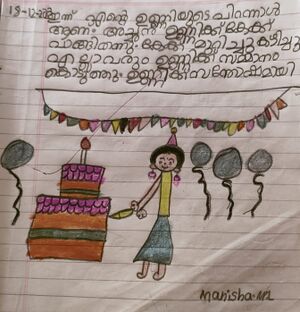 ഇന്ന് എന്റെ ഉണ്ണിയുടെ പിറന്നാൾ
ആണ്. അച്ഛൻ ഉണ്ണിക്ക് കേക്ക്
വാങ്ങി കേക്ക് മുറിച്ചു കഴിച്ചു
എല്ലാവരും ഉണ്ണിക്ക് സമ്മാനം
കൊടുത്തു. ഉണ്ണിക്ക് സന്തോഷമായി
Manisha.M